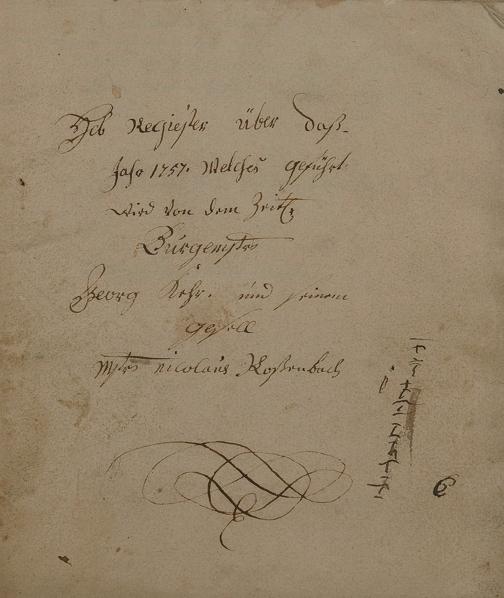 Heb Regiester über daß
Jahr 1757. Welches geführt
wird von dem Zeitl:
Bürgermstr
Georg Kehr. und seinem
gesell
Mstr Nicolaus Roßenbach
6